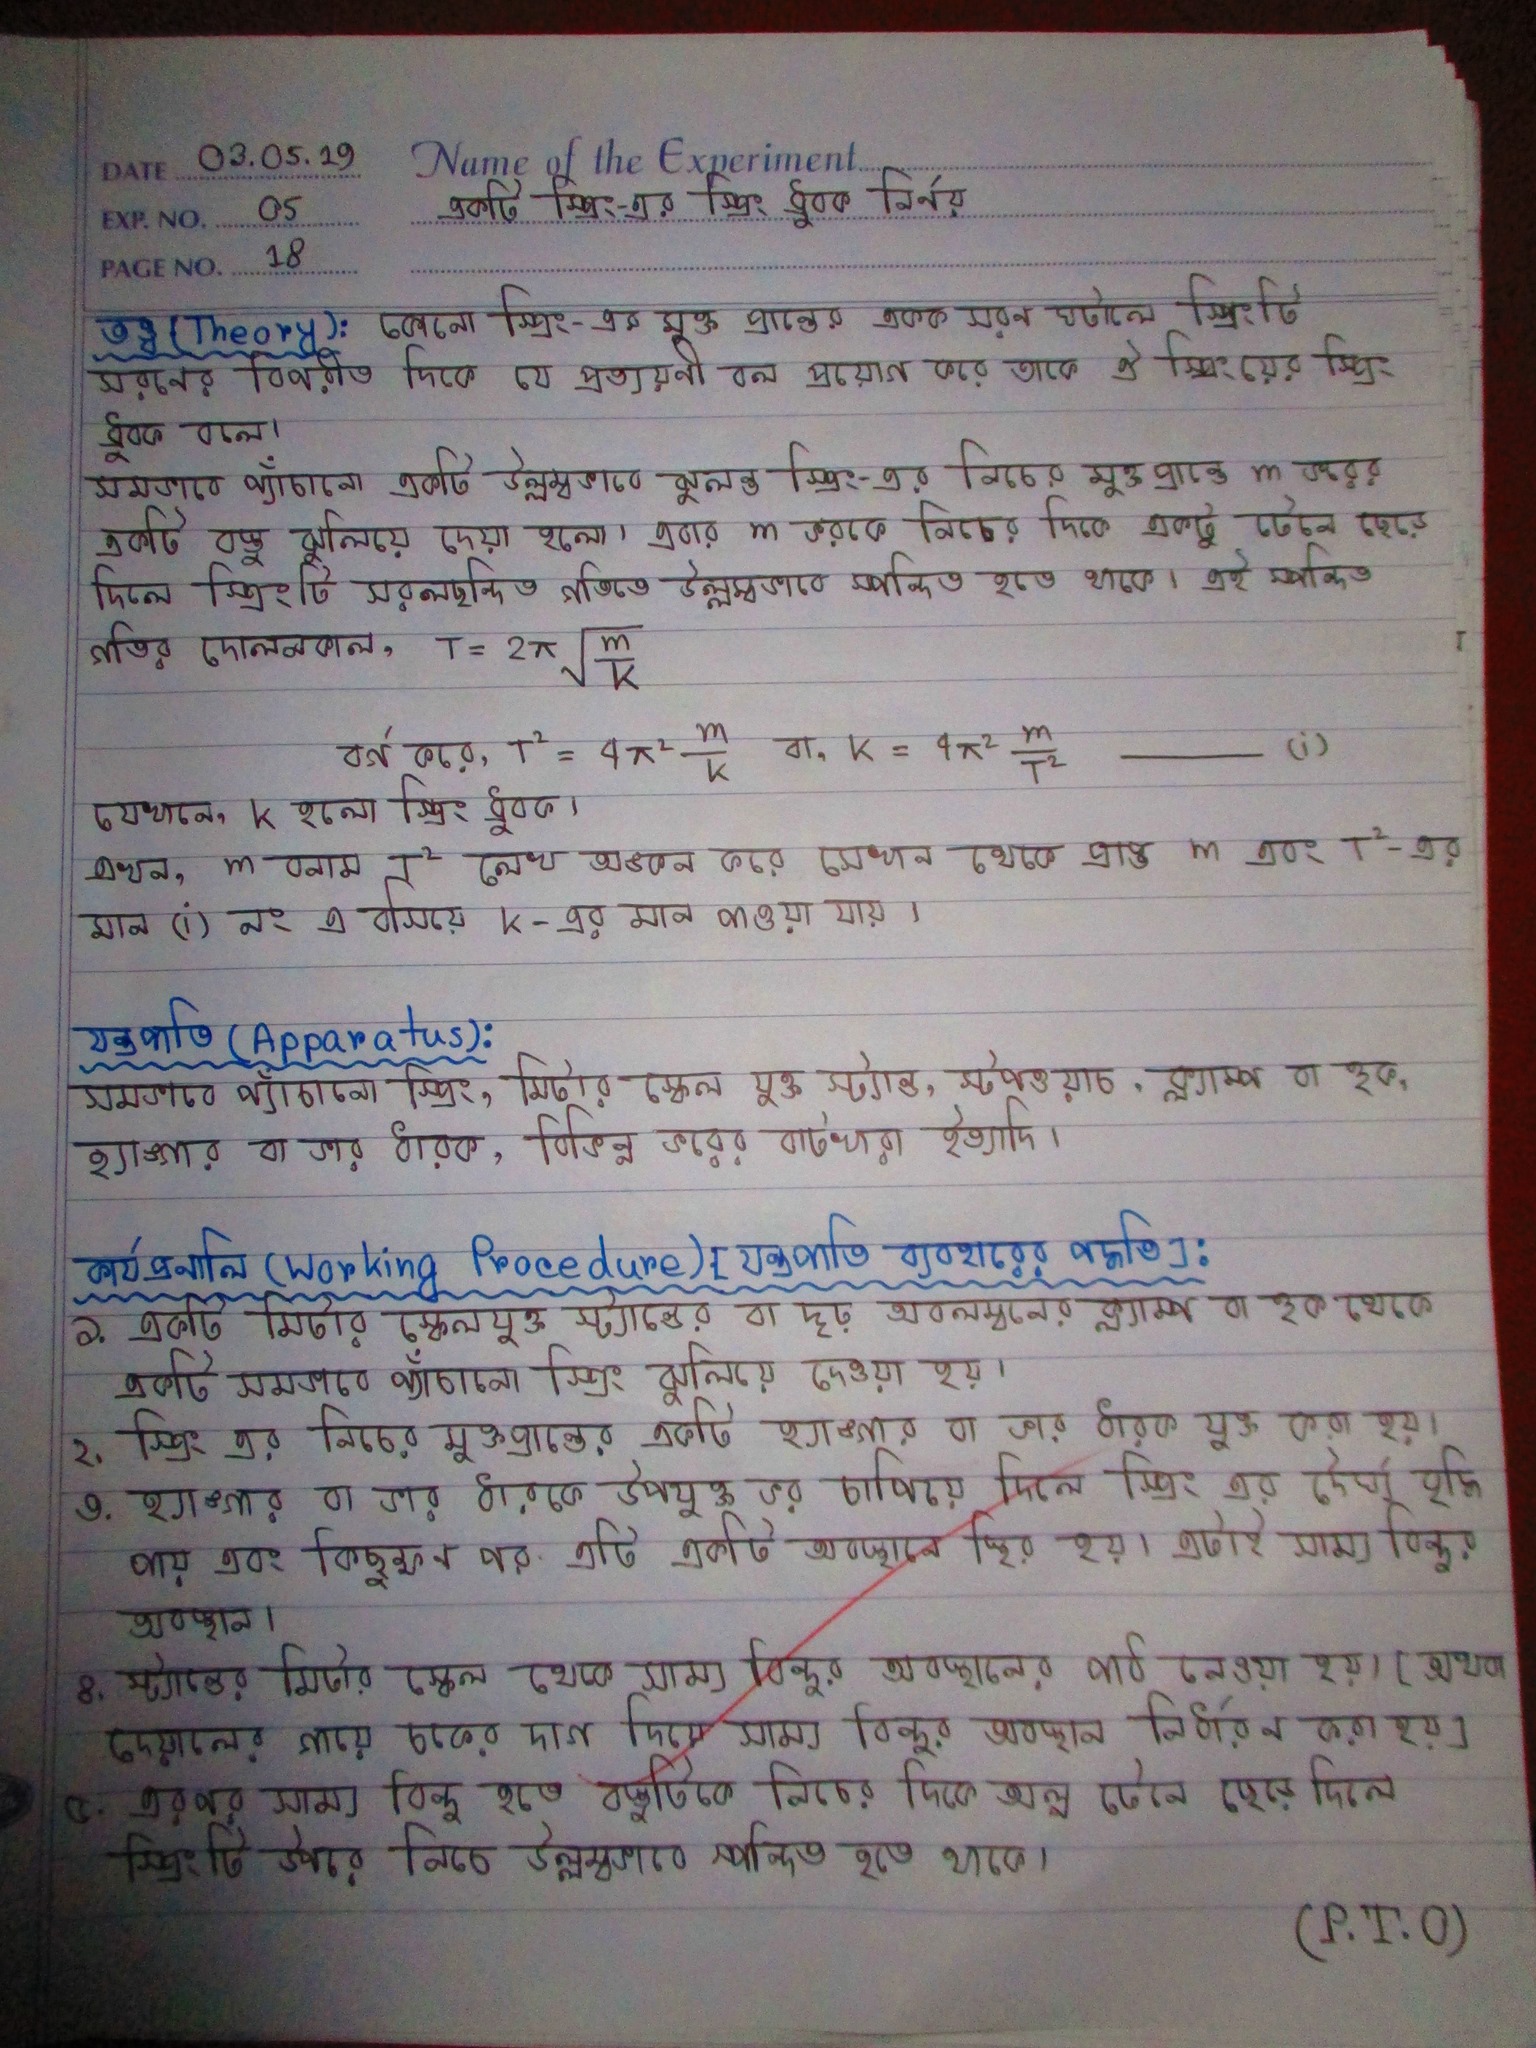 DATE 03.05.19 Name of the Experiment
EXP. NO. 05 একটি স্প্রিং-এর স্প্রিং ধ্রুবক নির্নয়
PAGE NO. 18
তত্ত্ব (Theory): কোনো স্প্রিং-এর মুক্ত প্রান্তের একক সরন ঘটালে স্প্রিংটি
সরনের বিপরীত দিকে যে প্রত্যয়নী বল প্রয়োগ করে তাকে ঐ স্প্রিংয়ের স্প্রিং
ধ্রুবক বলে।
সমভাবে প্যাঁচানো একটি উল্লম্বভাবে ঝুলন্ত স্প্রিং-এর নিচের মুক্তপ্রান্তে m ভরের
একটি বস্তু ঝুলিয়ে দেয়া হলো। এবার m ভরকে নিচের দিকে একটু টেনে ছেড়ে
দিলে স্প্রিংটি সরলছন্দিত গতিতে উল্লম্বভাবে স্পন্দিত হতে থাকে। এই স্পন্দিত
গতির দোলনকাল, T = 2π √(m/k)
বর্গ করে, T² = 4π² m/k বা, k = 4π² m/T² ——— (i)
যেখানে, k হলো স্প্রিং ধ্রুবক।
এখন, m বনাম T² লেখ অঙ্কন করে সেখান থেকে প্রাপ্ত m এবং T²-এর
মান (i) নং এ বসিয়ে k-এর মান পাওয়া যায়।
যন্ত্রপাতি (Apparatus):
সমভাবে প্যাঁচানো স্প্রিং, মিটার স্কেল যুক্ত স্ট্যান্ড, স্টপওয়াচ, ক্ল্যাম্প বা হুক,
হ্যাঙ্গার বা ভার ধারক, বিভিন্ন ভরের বাটখারা ইত্যাদি।
কার্যপ্রনালি (Working Procedure) [যন্ত্রপাতি ব্যবহারের পদ্ধতি]:
১. একটি মিটার স্কেলযুক্ত স্ট্যান্ডের বা দৃঢ় অবলম্বনের ক্ল্যাম্প বা হুক থেকে
একটি সমভাবে প্যাঁচানো স্প্রিং ঝুলিয়ে দেওয়া হয়।
২. স্প্রিং এর নিচের মুক্তপ্রান্তের একটি হ্যাঙ্গার বা ভার ধারক যুক্ত করা হয়।
৩. হ্যাঙ্গার বা ভার ধারকে উপযুক্ত ভর চাপিয়ে দিলে স্প্রিং এর দৈর্ঘ্য বৃদ্ধি
পায় এবং কিছুক্ষন পর এটি একটি অবস্থানে স্থির হয়। এটাই সাম্য বিন্দুর
অবস্থান।
৪. স্ট্যান্ডের মিটার স্কেল থেকে সাম্য বিন্দুর অবস্থানের পাঠ নেওয়া হয়। [অথবা
দেয়ালের গায়ে চকের দাগ দিয়ে সাম্য বিন্দুর অবস্থান নির্ধারন করা হয়]
৫. এরপর সাম্য বিন্দু হতে বস্তুটিকে নিচের দিকে অল্প টেনে ছেড়ে দিলে
স্প্রিংটি উপরে নিচে উল্লম্বভাবে স্পন্দিত হতে থাকে।
(P.T.O)